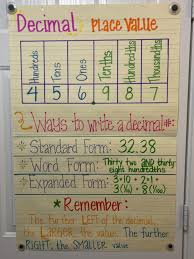 Decimal Place Value
Hundreds Tens Ones Tenths Hundredths Thousandths
4 5 6 9 8 7
2 Ways to write a decimal#:
*Standard Form: 32.38
*Word Form: Thirty two AND thirty
eight hundredths
*Expanded Form: 3×10 + 2×1 +
3(1/10) + 8(1/100)
*Remember:
The further LEFT of the decimal,
the LARGER the value. The further
RIGHT, the SMALLER value